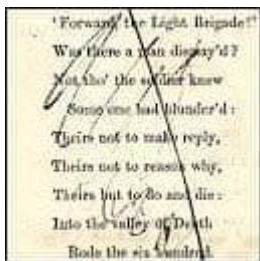 'Forward, the Light Brigade!'
Was there a man dismay'd?
Not tho' the soldier knew
Some one had blunder'd:
Theirs not to make reply,
Theirs not to reason why,
Theirs but to do and die:
Into the valley of Death
Rode the six hundred.